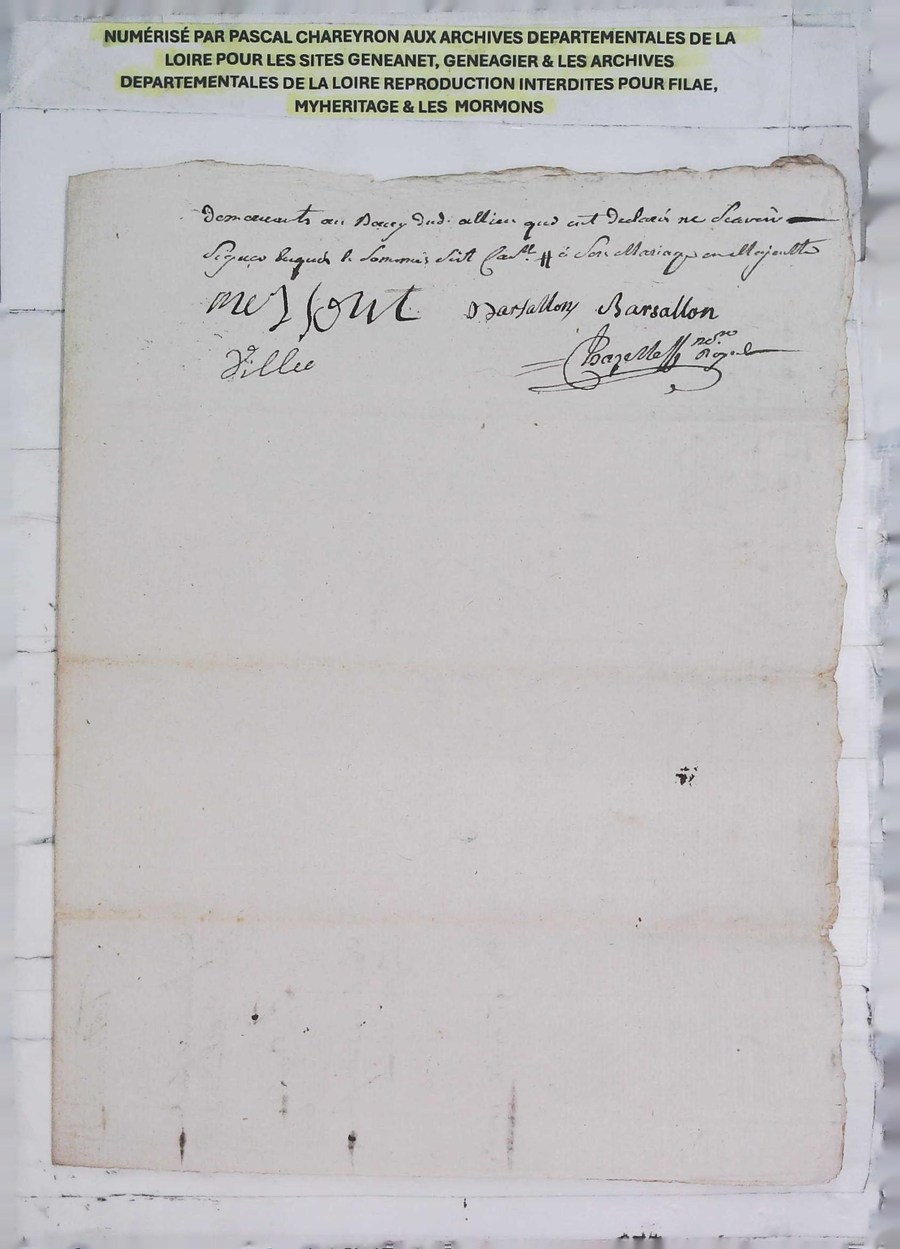 NUMÉRISÉ PAR PASCAL CHAREYRON AUX ARCHIVES DEPARTEMENTALES DE LA
LOIRE POUR LES SITES GENEANET, GENEAGIER & LES ARCHIVES
DEPARTEMENTALES DE LA LOIRE REPRODUCTION INTERDITES POUR FILAE,
MYHERITAGE & LES MORMONS
demeurants au Bourg dud. allieu qui ont declarés ne Scavoir
Signer le Sommés Son Mariage
Barsallon Barsallon
Ville Chazelles no.re Royal